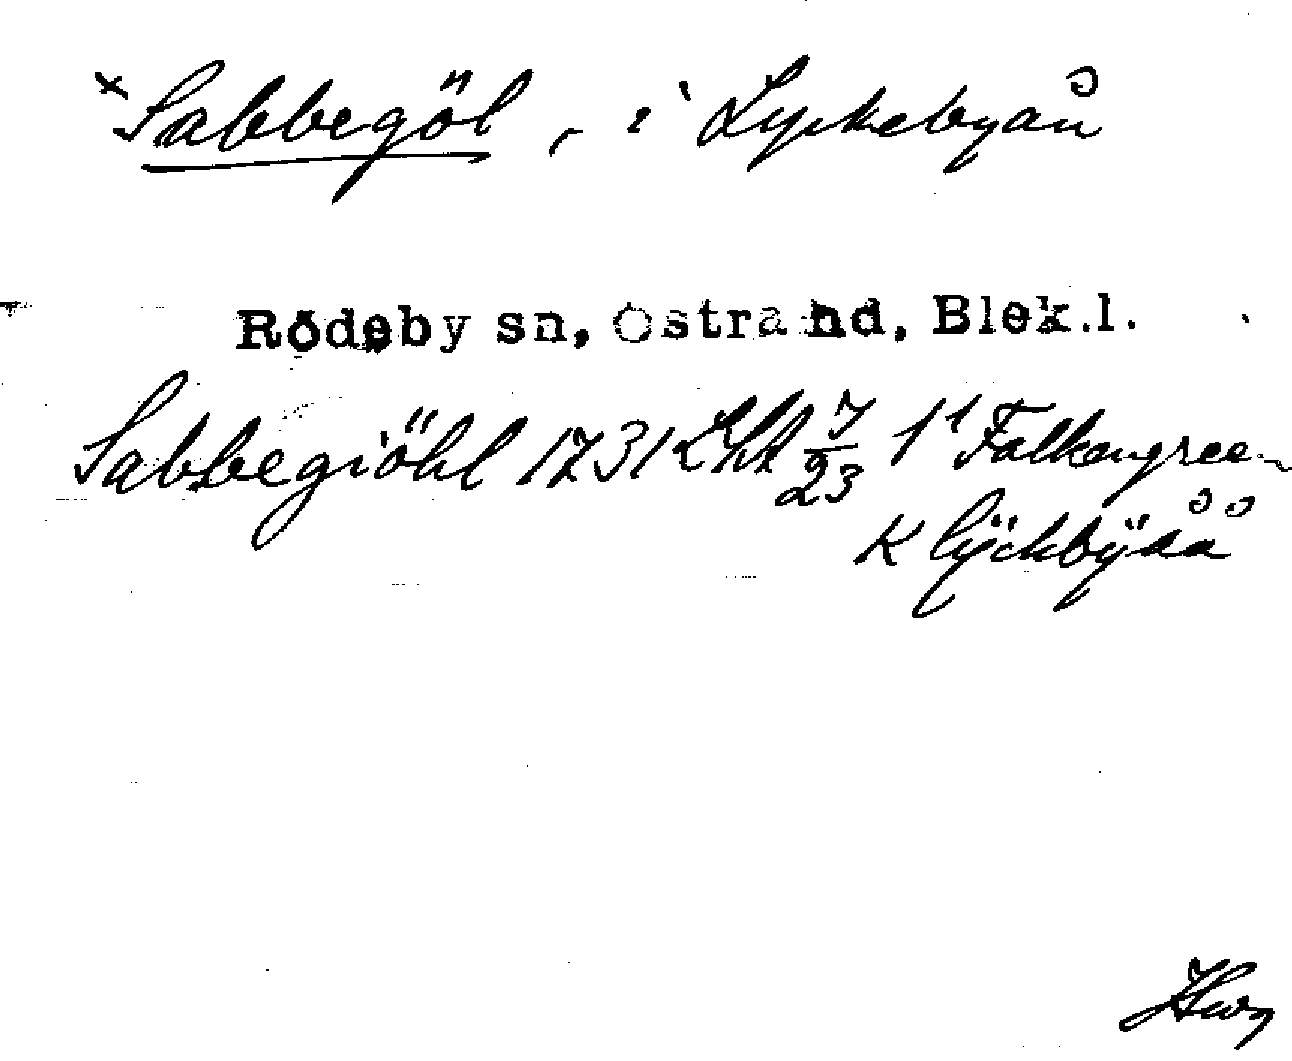 ×Sabbegöl, i Lyckebyån
Rödeby sn, Östra hd, Blek.l.
Sabbegiöhl 1731 LHt 7/23 f1 Falkengreen
K lÿckbÿåå